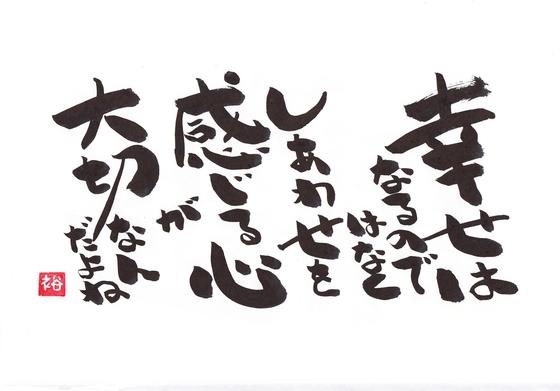 幸せは
なるので
はなく
しあわせを
感じる心
が
大切なん
だよね
裕